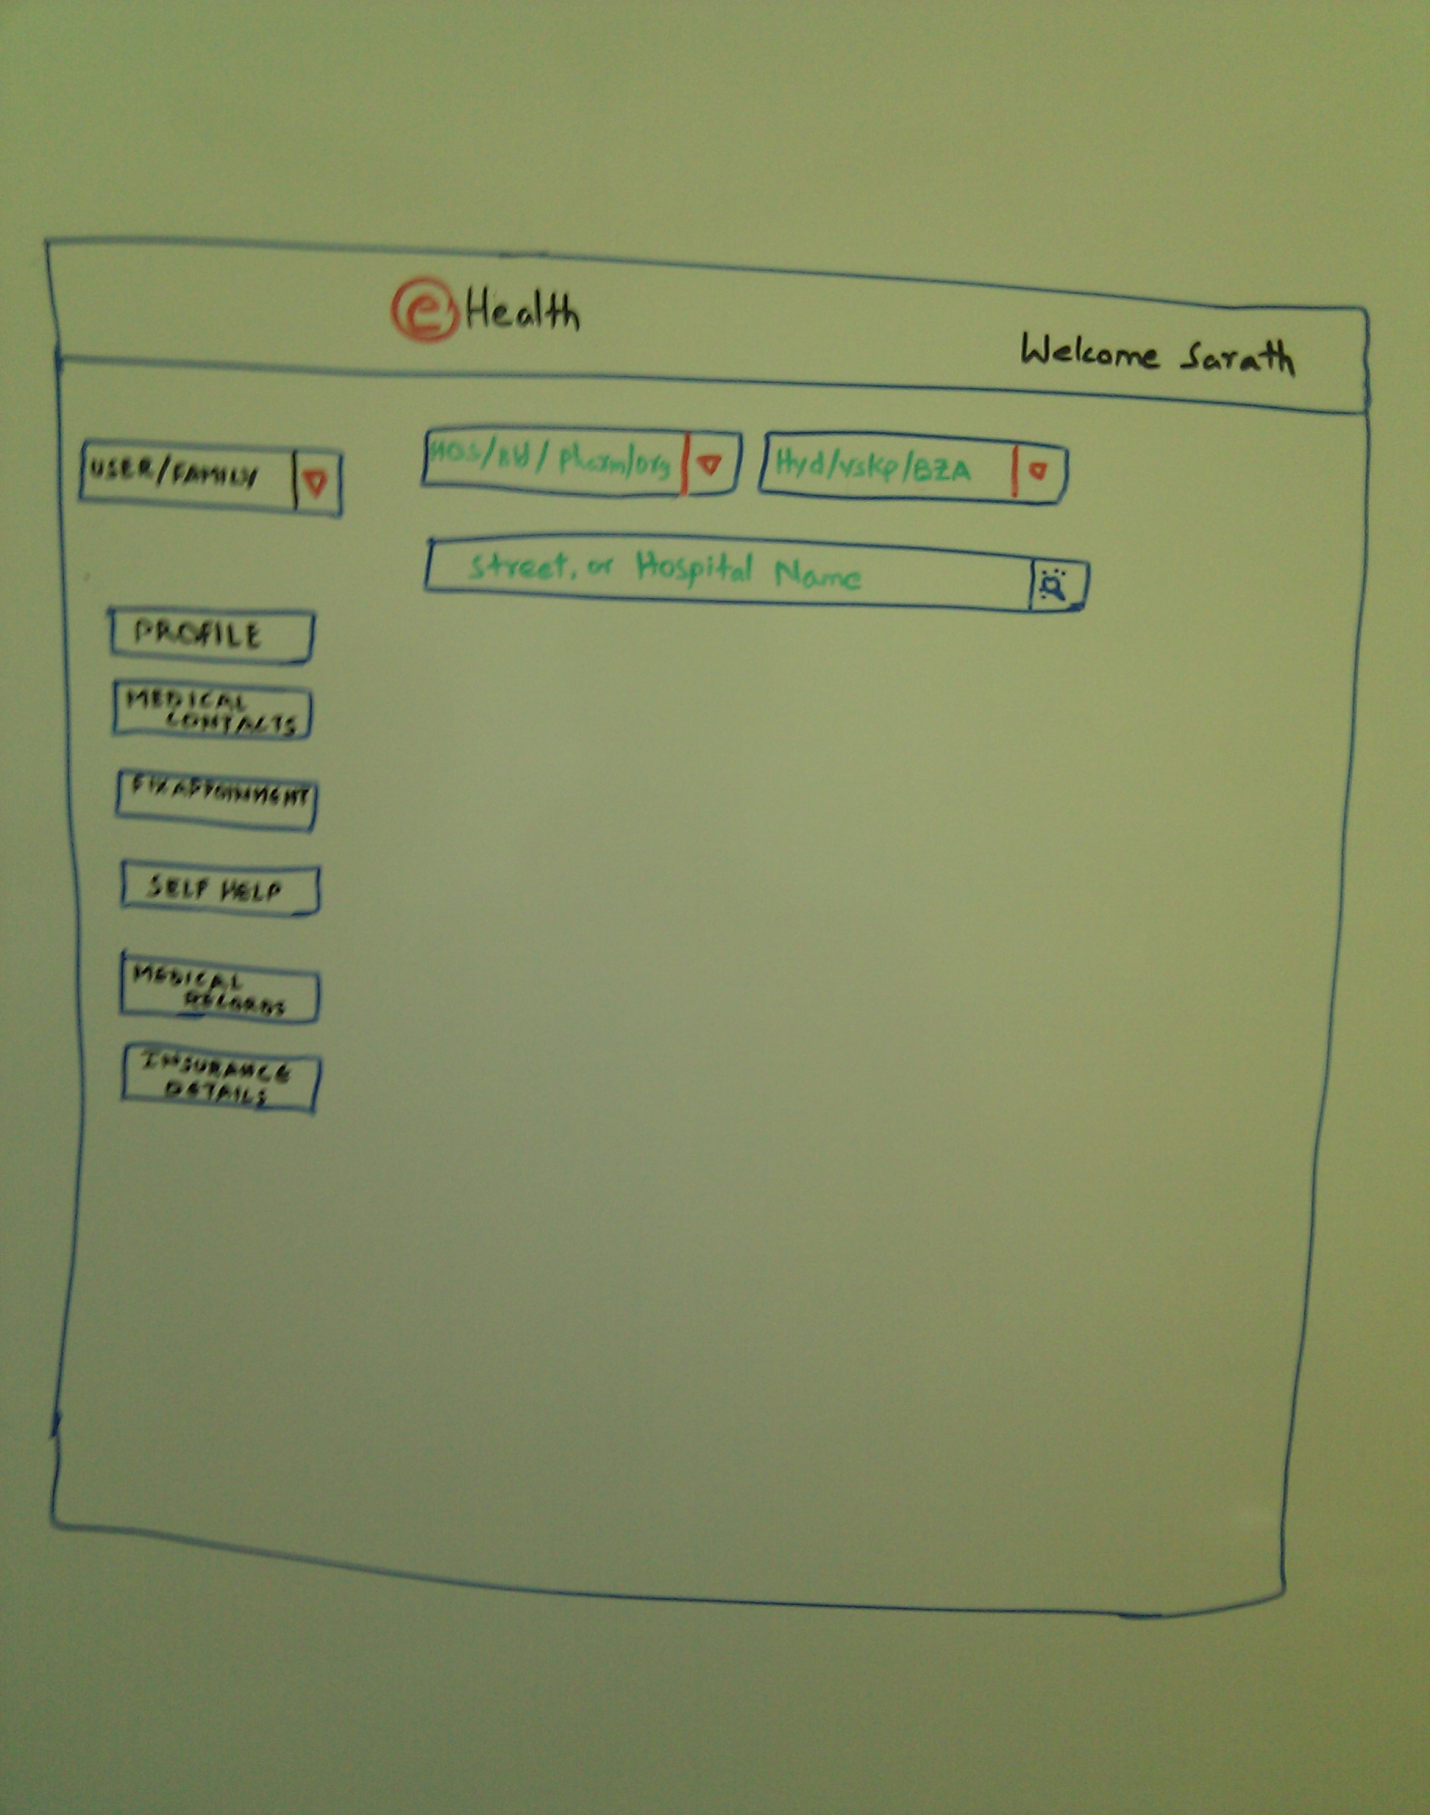 eHealth
Welcome Sarath
USER/FAMILY
HOS/Bld/pharm/org
Hyd/vskp/BZA
Street, or Hospital Name
PROFILE
MEDICAL
CONTACTS
FIX APPOINMENT
SELF HELP
MEDICAL
RECORDS
INSURANCE
DETAILS